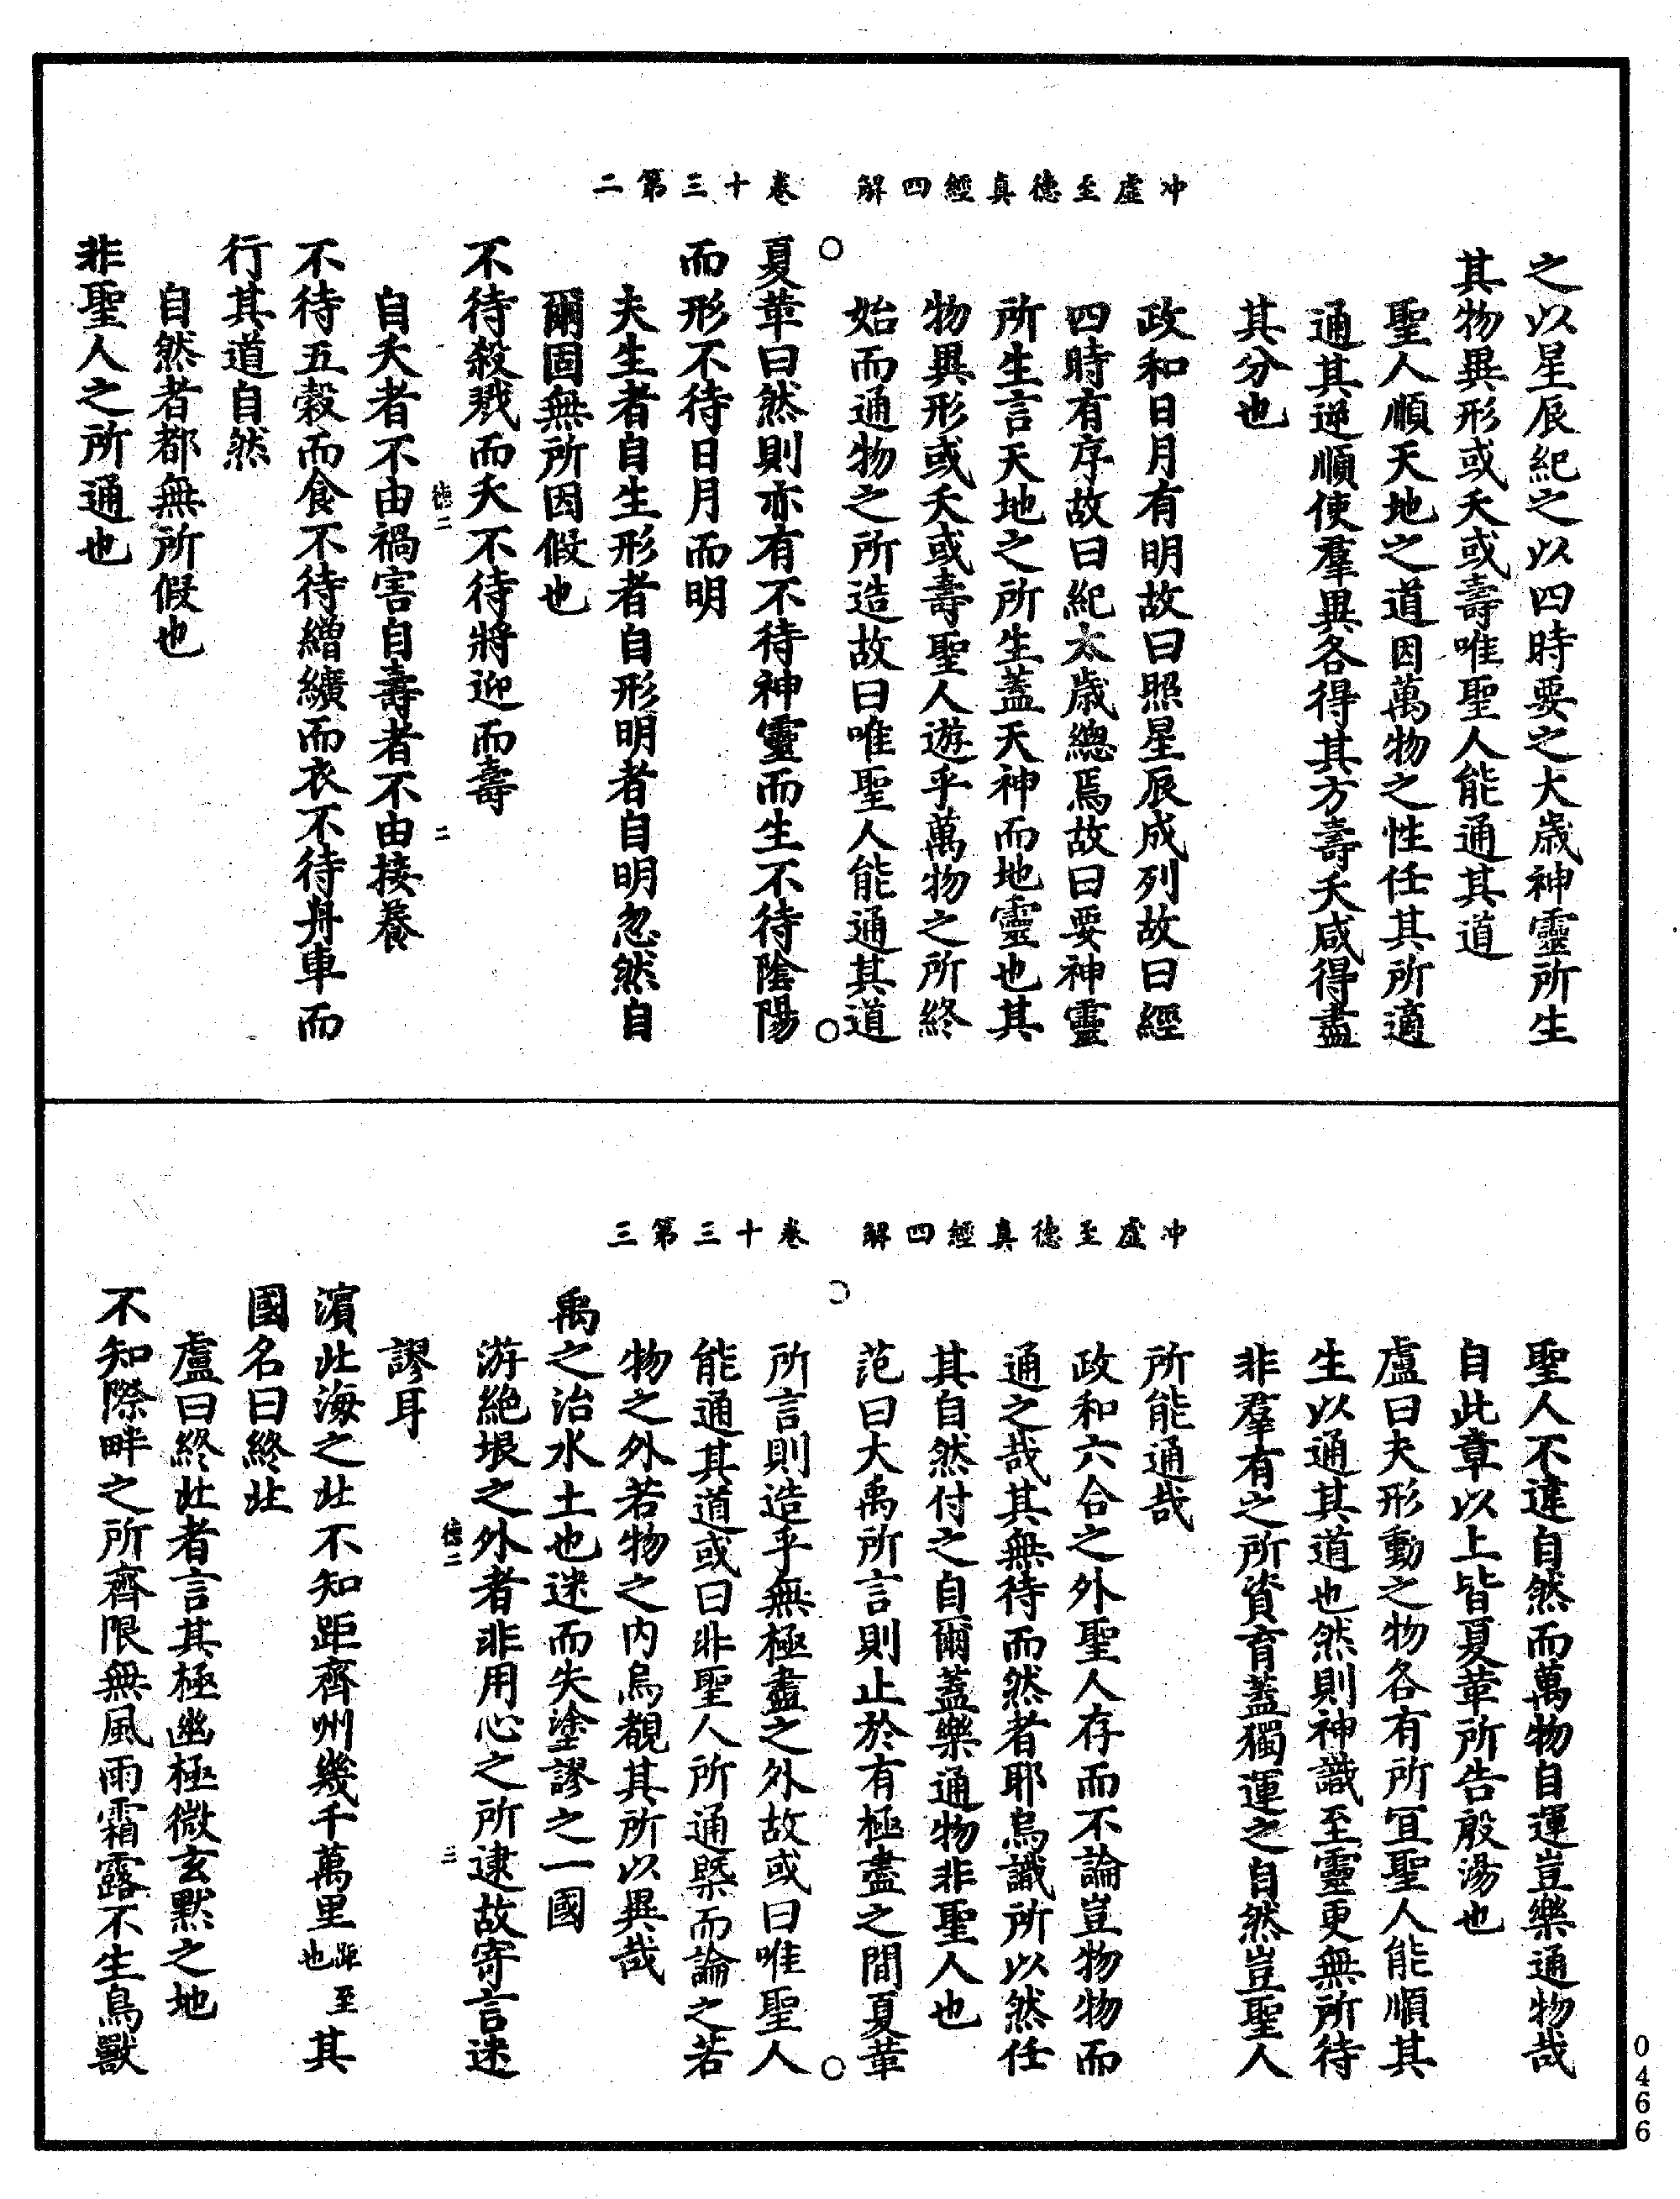 冲虛至德真經四解　卷十三第二
之以星辰紀之以四時要之大歲神靈所生
其物異形或夭或壽唯聖人能通其道
聖人順天地之道因萬物之性任其所適
通其逆順使羣異各得其方壽夭咸得盡
其分也
政和日月有明故曰照星辰成列故曰經
四時有序故曰紀太歲總焉故曰要神靈
所生言天地之所生蓋天神而地靈也其
物異形或夭或壽聖人遊乎萬物之所終
始而通物之所造故曰唯聖人能通其道
夏革曰然則亦有不待神靈而生不待陰陽
而形不待日月而明
夫生者自生形者自形明者自明忽然自
爾固無所因假也
不待殺戮而夭不待將迎而壽
德二
二
自夭者不由禍害自壽者不由接養
不待五穀而食不待繒纊而衣不待舟車而
行其道自然
自然者都無所假也
非聖人之所通也
冲虛至德真經四解　卷十三第三
聖人不違自然而萬物自運豈樂通物哉
自此章以上皆夏革所告殷湯也
盧曰夫形動之物各有所宜聖人能順其
生以通其道也然則神識至靈更無所待
非羣有之所資育蓋獨運之自然豈聖人
所能通哉
政和六合之外聖人存而不論豈物物而
通之哉其無待而然者耶烏識所以然任
其自然付之自爾蓋樂通物非聖人也
范曰大禹所言則止於有極盡之間夏革
所言則造乎無極盡之外故或曰唯聖人
能通其道或曰非聖人所通槩而論之若
物之外若物之内烏覩其所以異哉
禹之治水土也迷而失塗謬之一國
游絶垠之外者非用心之所逮故寄言迷
德二
三
謬耳
濱北海之北不知距齊州幾千萬里距至也其
國名曰終北
盧曰終北者言其極幽極微玄默之地
不知際畔之所齊限無風雨霜露不生鳥獸
0466